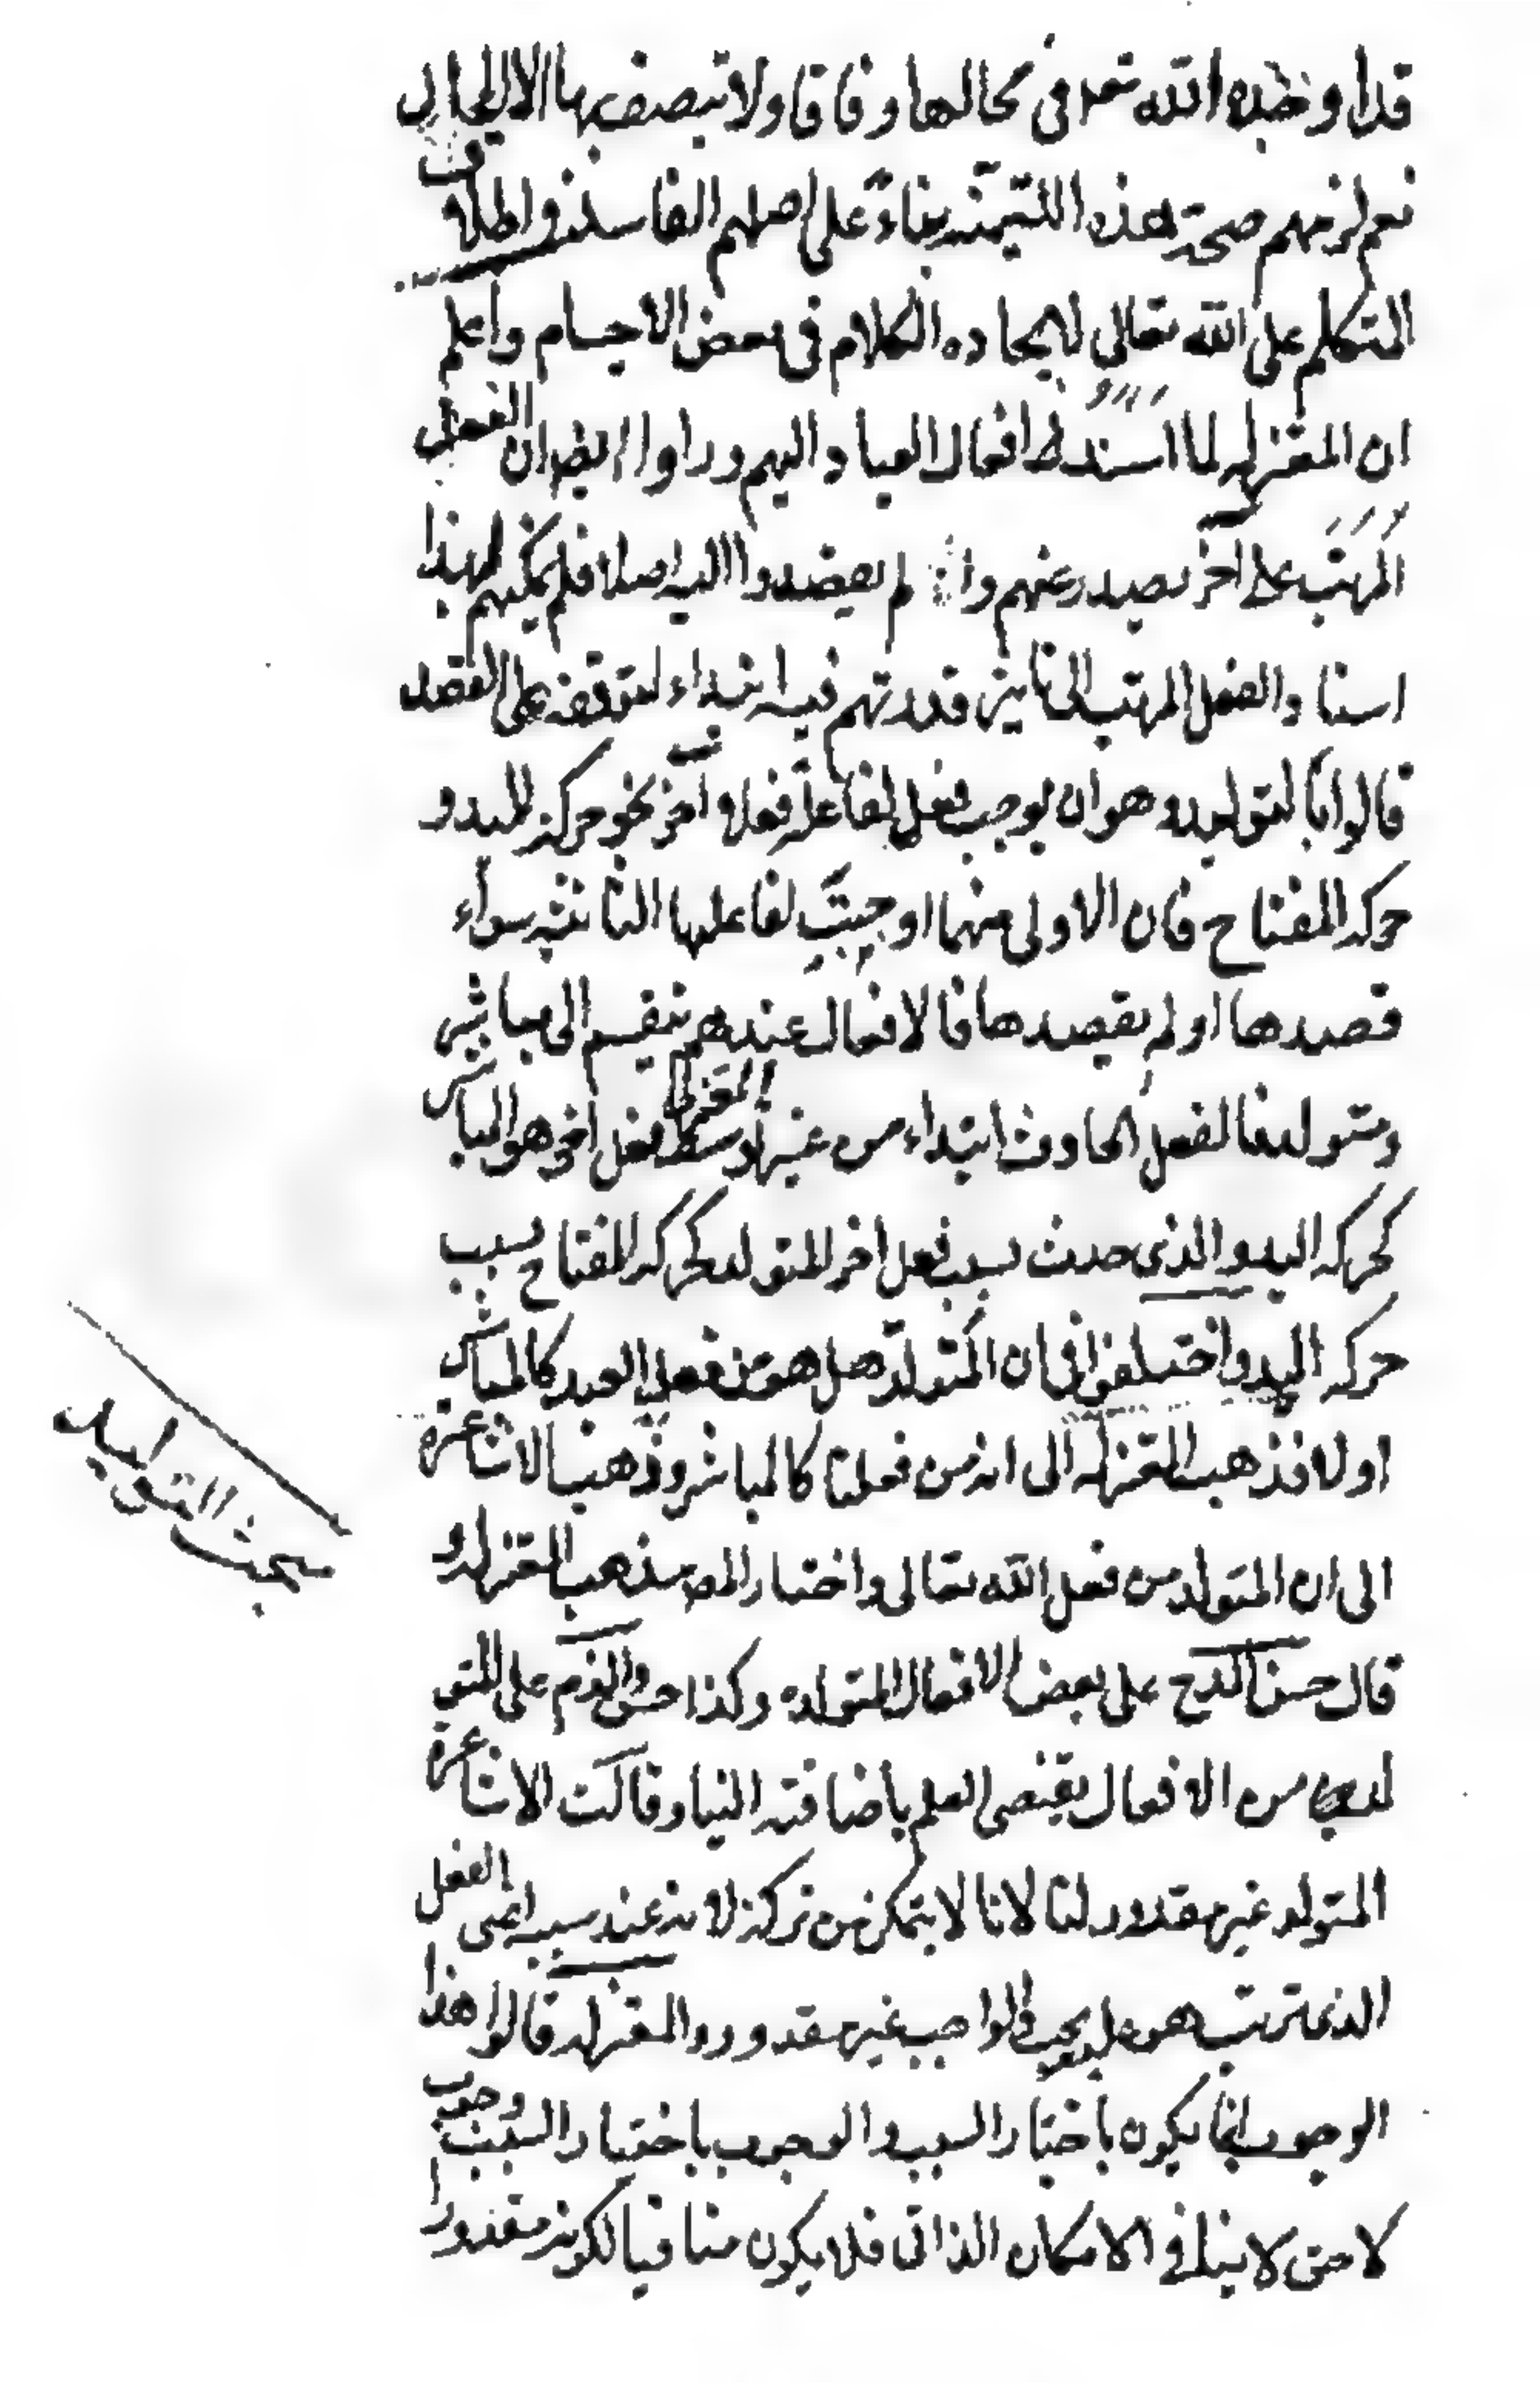 قد اوجده الله تعالى فى محالها وفاقا ولا تتصف بها الا المحال
نعم لزمهم صحة هذه التسمية بناءً على اصلهم الفاسد فى اطلاق
المتكلم على الله تعالى لايجاده الكلام فى بعض الاجسام واعلم
ان المعتزلة لما اسندوا افعال العباد اليهم وراوا ايضا ان الفعل
المرتب على آخر يصدر عنهم وان لم يقصدوا اليه اصلا فلم يمكنهم لهذا
اسناد الفعل المرتب الى تاثير قدرتهم فيه ابتداء لتوقفه على القصد
قالوا بالتوليد وهو ان يوجب فعل لفاعله فعلا آخر نحو حركة اليد و
حركة المفتاح فان الاولى منهما اوجبت لفاعلها الثانية سواء
قصدها او لم يقصدها فالافعال عندهم تنقسم الى مباشر
ومتولد فالفعل الحادث ابتداء من غير توسط فعل اخر هو المباشر
كحركة اليد والذى حدث بسبب فعل اخر المتولد كحركة المفتاح بسبب
حركة اليد واختلفوا فى ان المتولد هل هو من فعل العبد كالمباشر
او لا فذهب المعتزلة الى انه من فعلنا كالمباشر وذهب الاشاعرة
الى ان المتولد من فعل الله تعالى واختار المص مذهب المعتزلة و
قال حسن المدح على بعض الافعال المتولدة وكذا حسن الذم على المتو
لد من الافعال يقتضى العلم باضافته الينا وقالت الاشاعرة
المتولد غير مقدور لنا لانا لا نتمكن من تركه لانه عند سببه اعنى الفعل
الذى ترتب هو عليه يجب والواجب غير مقدور والمعتزلة قالوا هذا
الوجوب انما يكون باختيار السبب والوجوب باختيار السبب وجوب
لاحق لا ينافى الامكان الذاتى فلا يكون منافيا لكونه مقدورا
مبحث التوليد